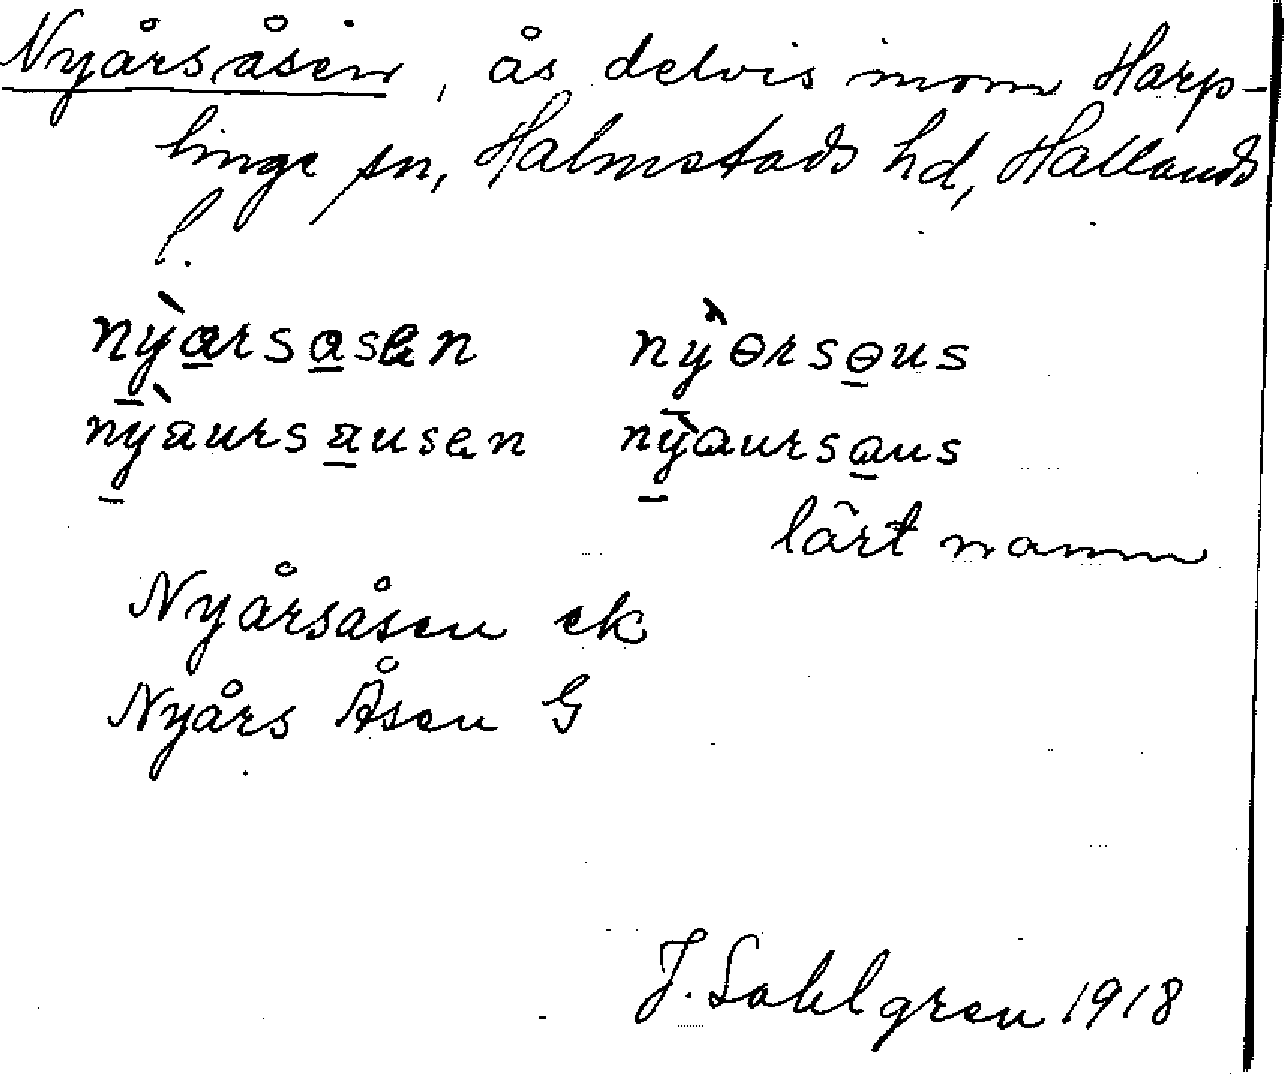 Nyårsåsen, ås delvis inom Harp-
linge sn, Halmstads hd, Hallands
l.
nỳarsasen nỳɵrsɵus
nỳaursausen nỳaursaus
lärt namn
Nyårsåsen ek
Nyårs Åsen G
J. Sahlgren 1918